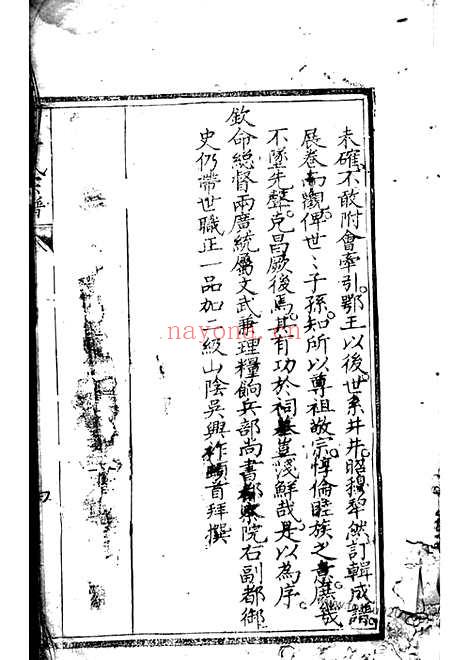 未確不敢附會牽引鄂王以後世系井井昭穆犂然訂輯成譜
展卷而觀俾世〻子孫知所以尊祖敬宗惇倫睦族之意庶幾
不墜先聲克昌厥後焉其有功於祠墓豈淺鮮哉是以為序
欽命總督兩廣統屬文武兼理糧餉兵部尚書都察院右副都御
史仍帶世職正一品加二級山陰吳興祚頓首拜撰
氏宗譜
nayona.cn